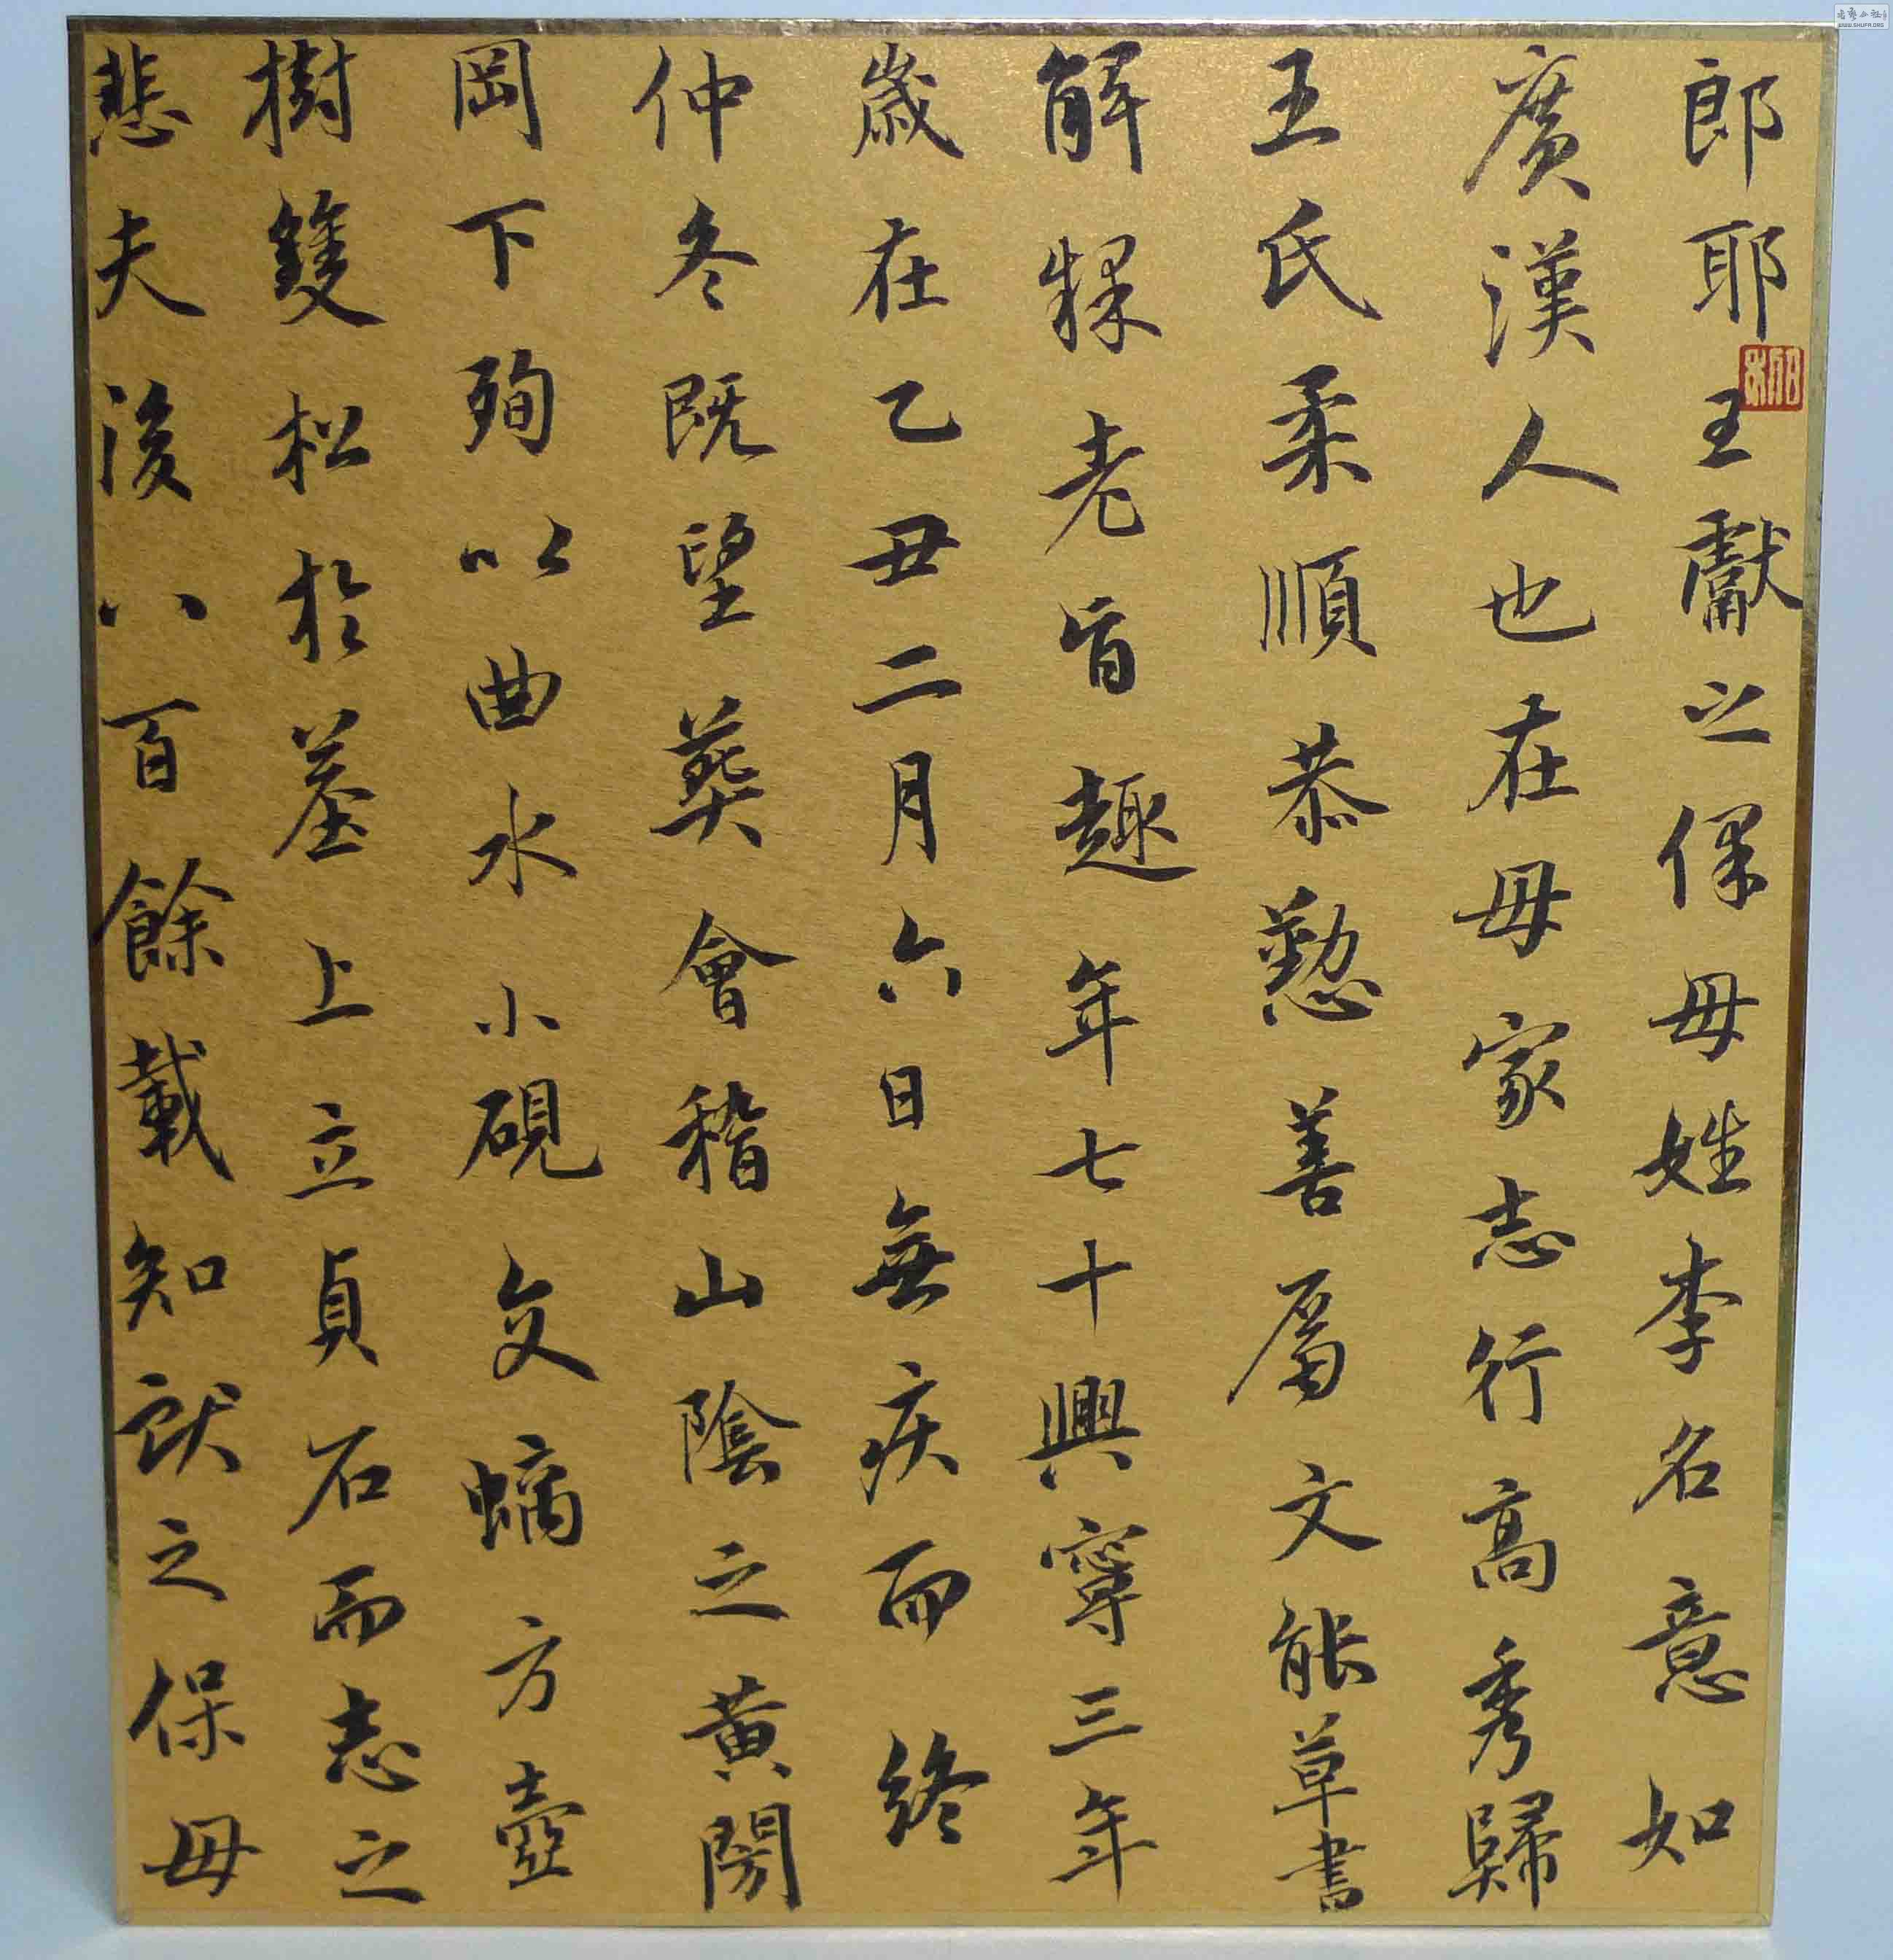 郎耶王獻之保母姓李名意如
廣漢人也在母家志行高秀歸
王氏柔順恭懃善屬文能草書
解釋老旨趣年七十興寧三年
歲在乙丑二月六日無疾而終
仲冬既望葬會稽山陰之黃閍
岡下殉以曲水小硯交螭方壺
樹雙松於墓上立貞石而志之
悲夫後八百餘載知獻之保母
WWW.SHUFA.ORG